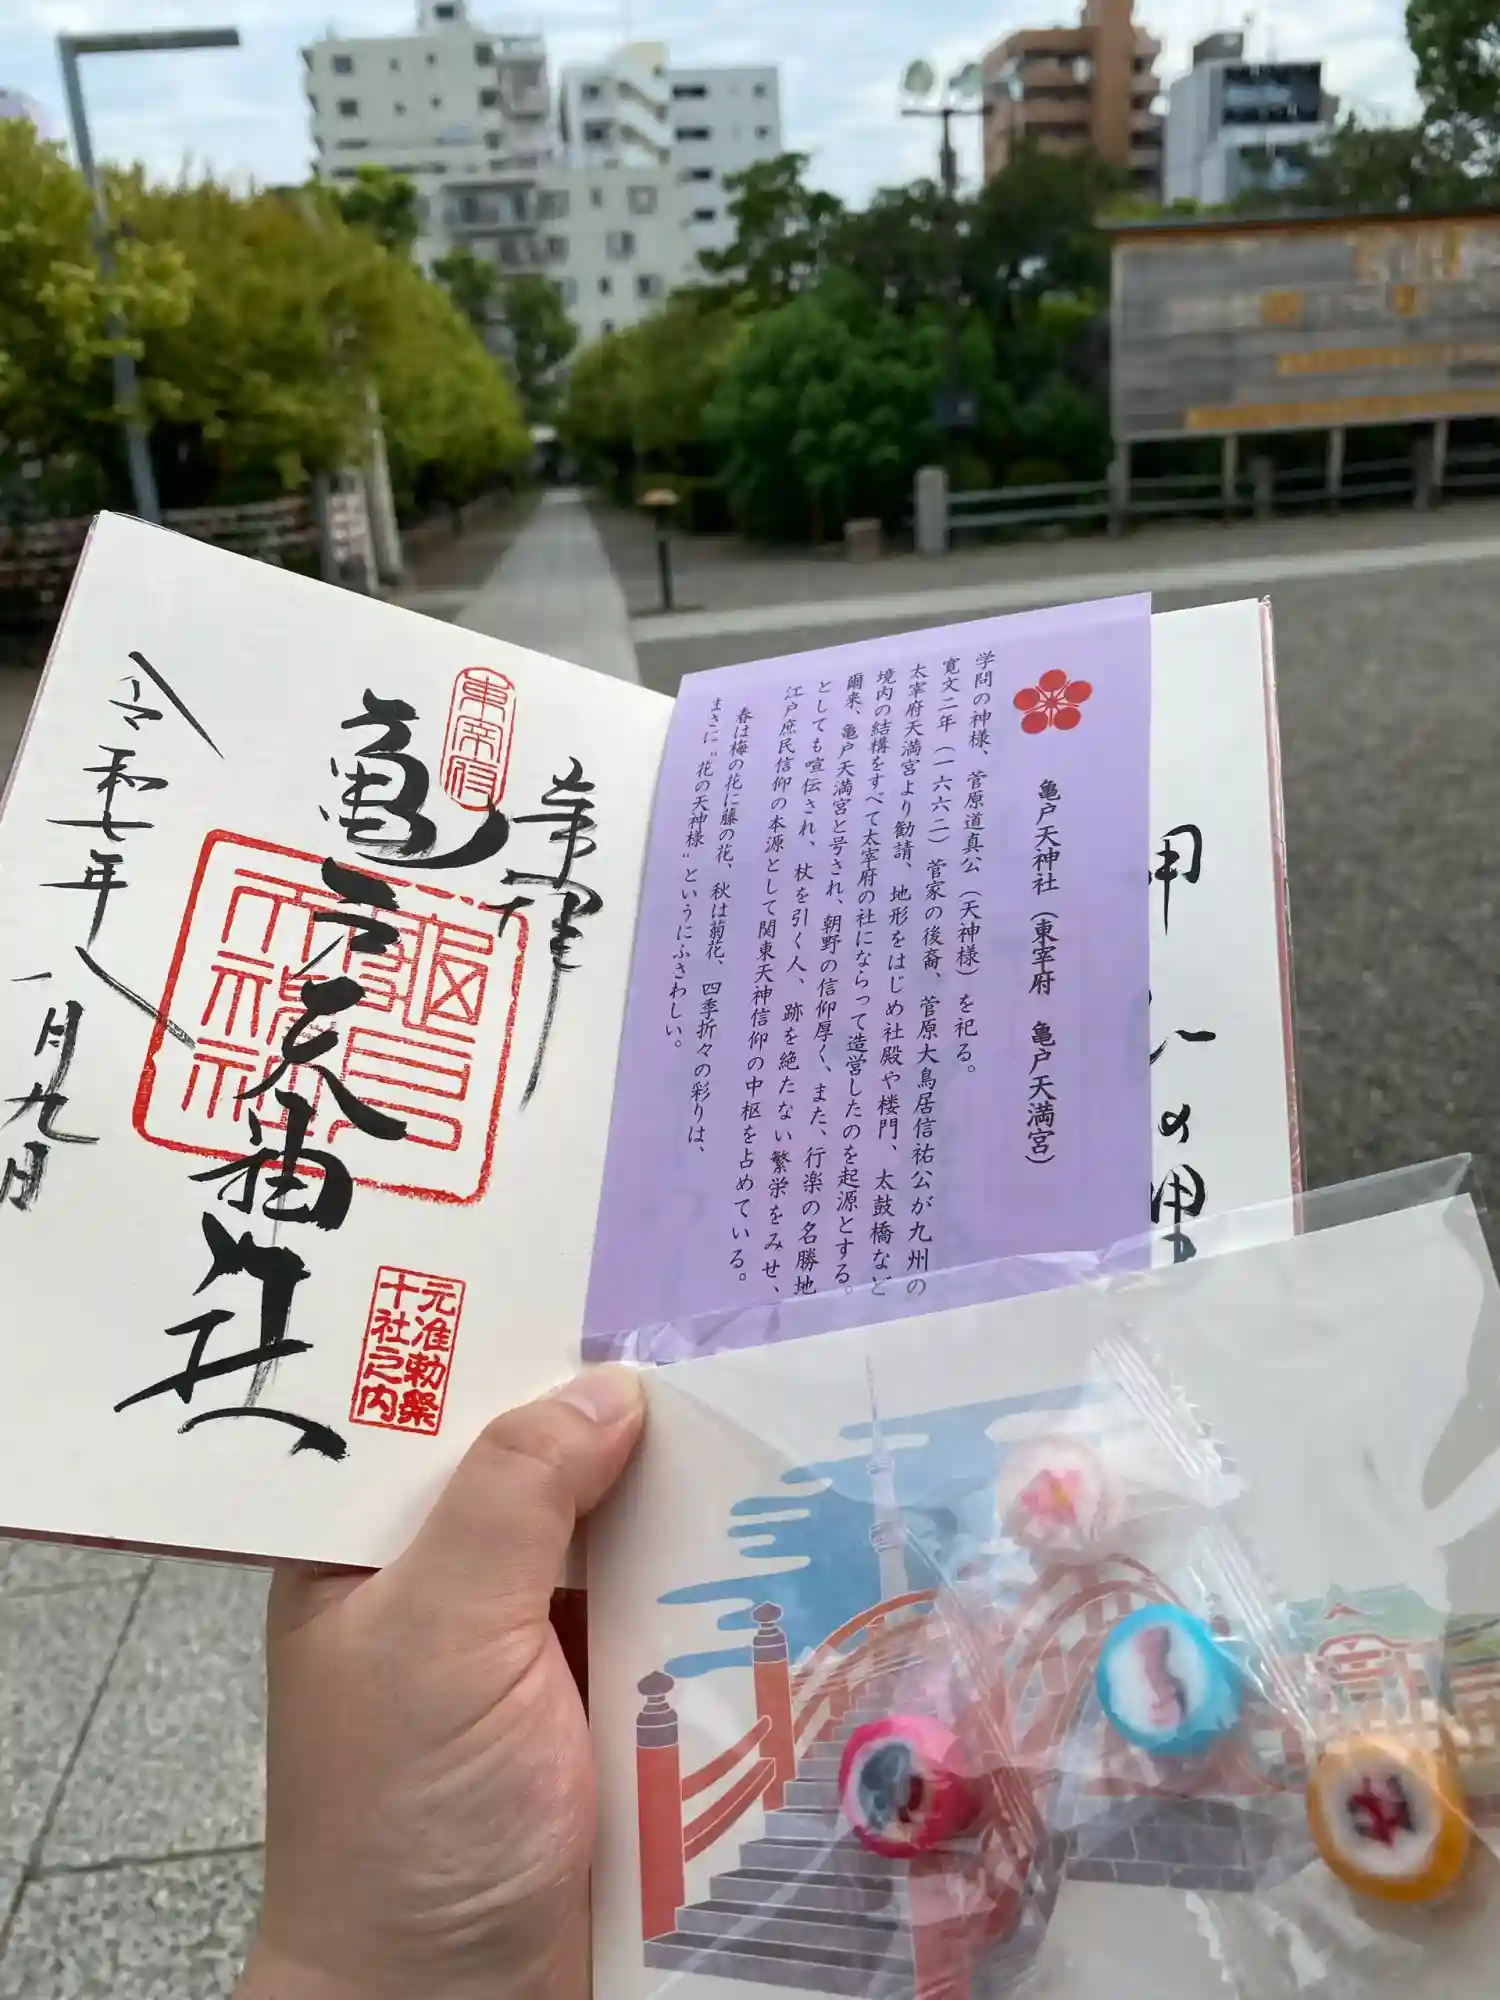 奉拝
東宰府
亀戸天神社
元准勅祭
十社之内
令和七年
八月九日
亀戸天神社（東宰府　亀戸天満宮）
学問の神様、菅原道真公（天神様）を祀る。
寛文二年（一六六二）菅家の後裔、菅原大鳥居信祐公が九州の
太宰府天満宮より勧請、地形をはじめ社殿や楼門、太鼓橋など
境内の結構をすべて太宰府の社にならって造営したのを起源とする。
爾来、亀戸天満宮と号され、朝野の信仰厚く、また、行楽の名勝地
としても喧伝され、杖を引く人、跡を絶たない繁栄をみせ、
江戸庶民信仰の本源として関東天神信仰の中枢を占めている。
春は梅の花に藤の花、秋は菊花、四季折々の彩りは、
まさに“花の天神様”というにふさわしい。